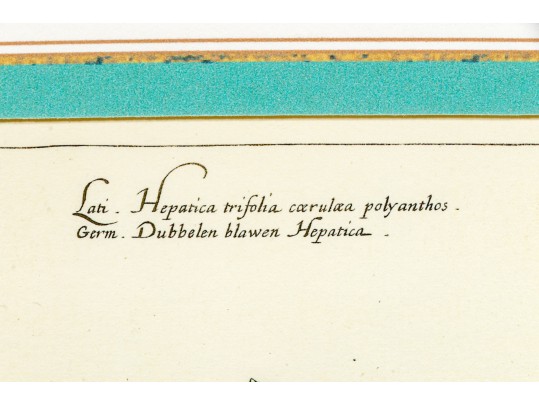 Lati. Hepatica trifolia cœrulæa polyanthos.
Germ. Dubbelen blawen Hepatica.